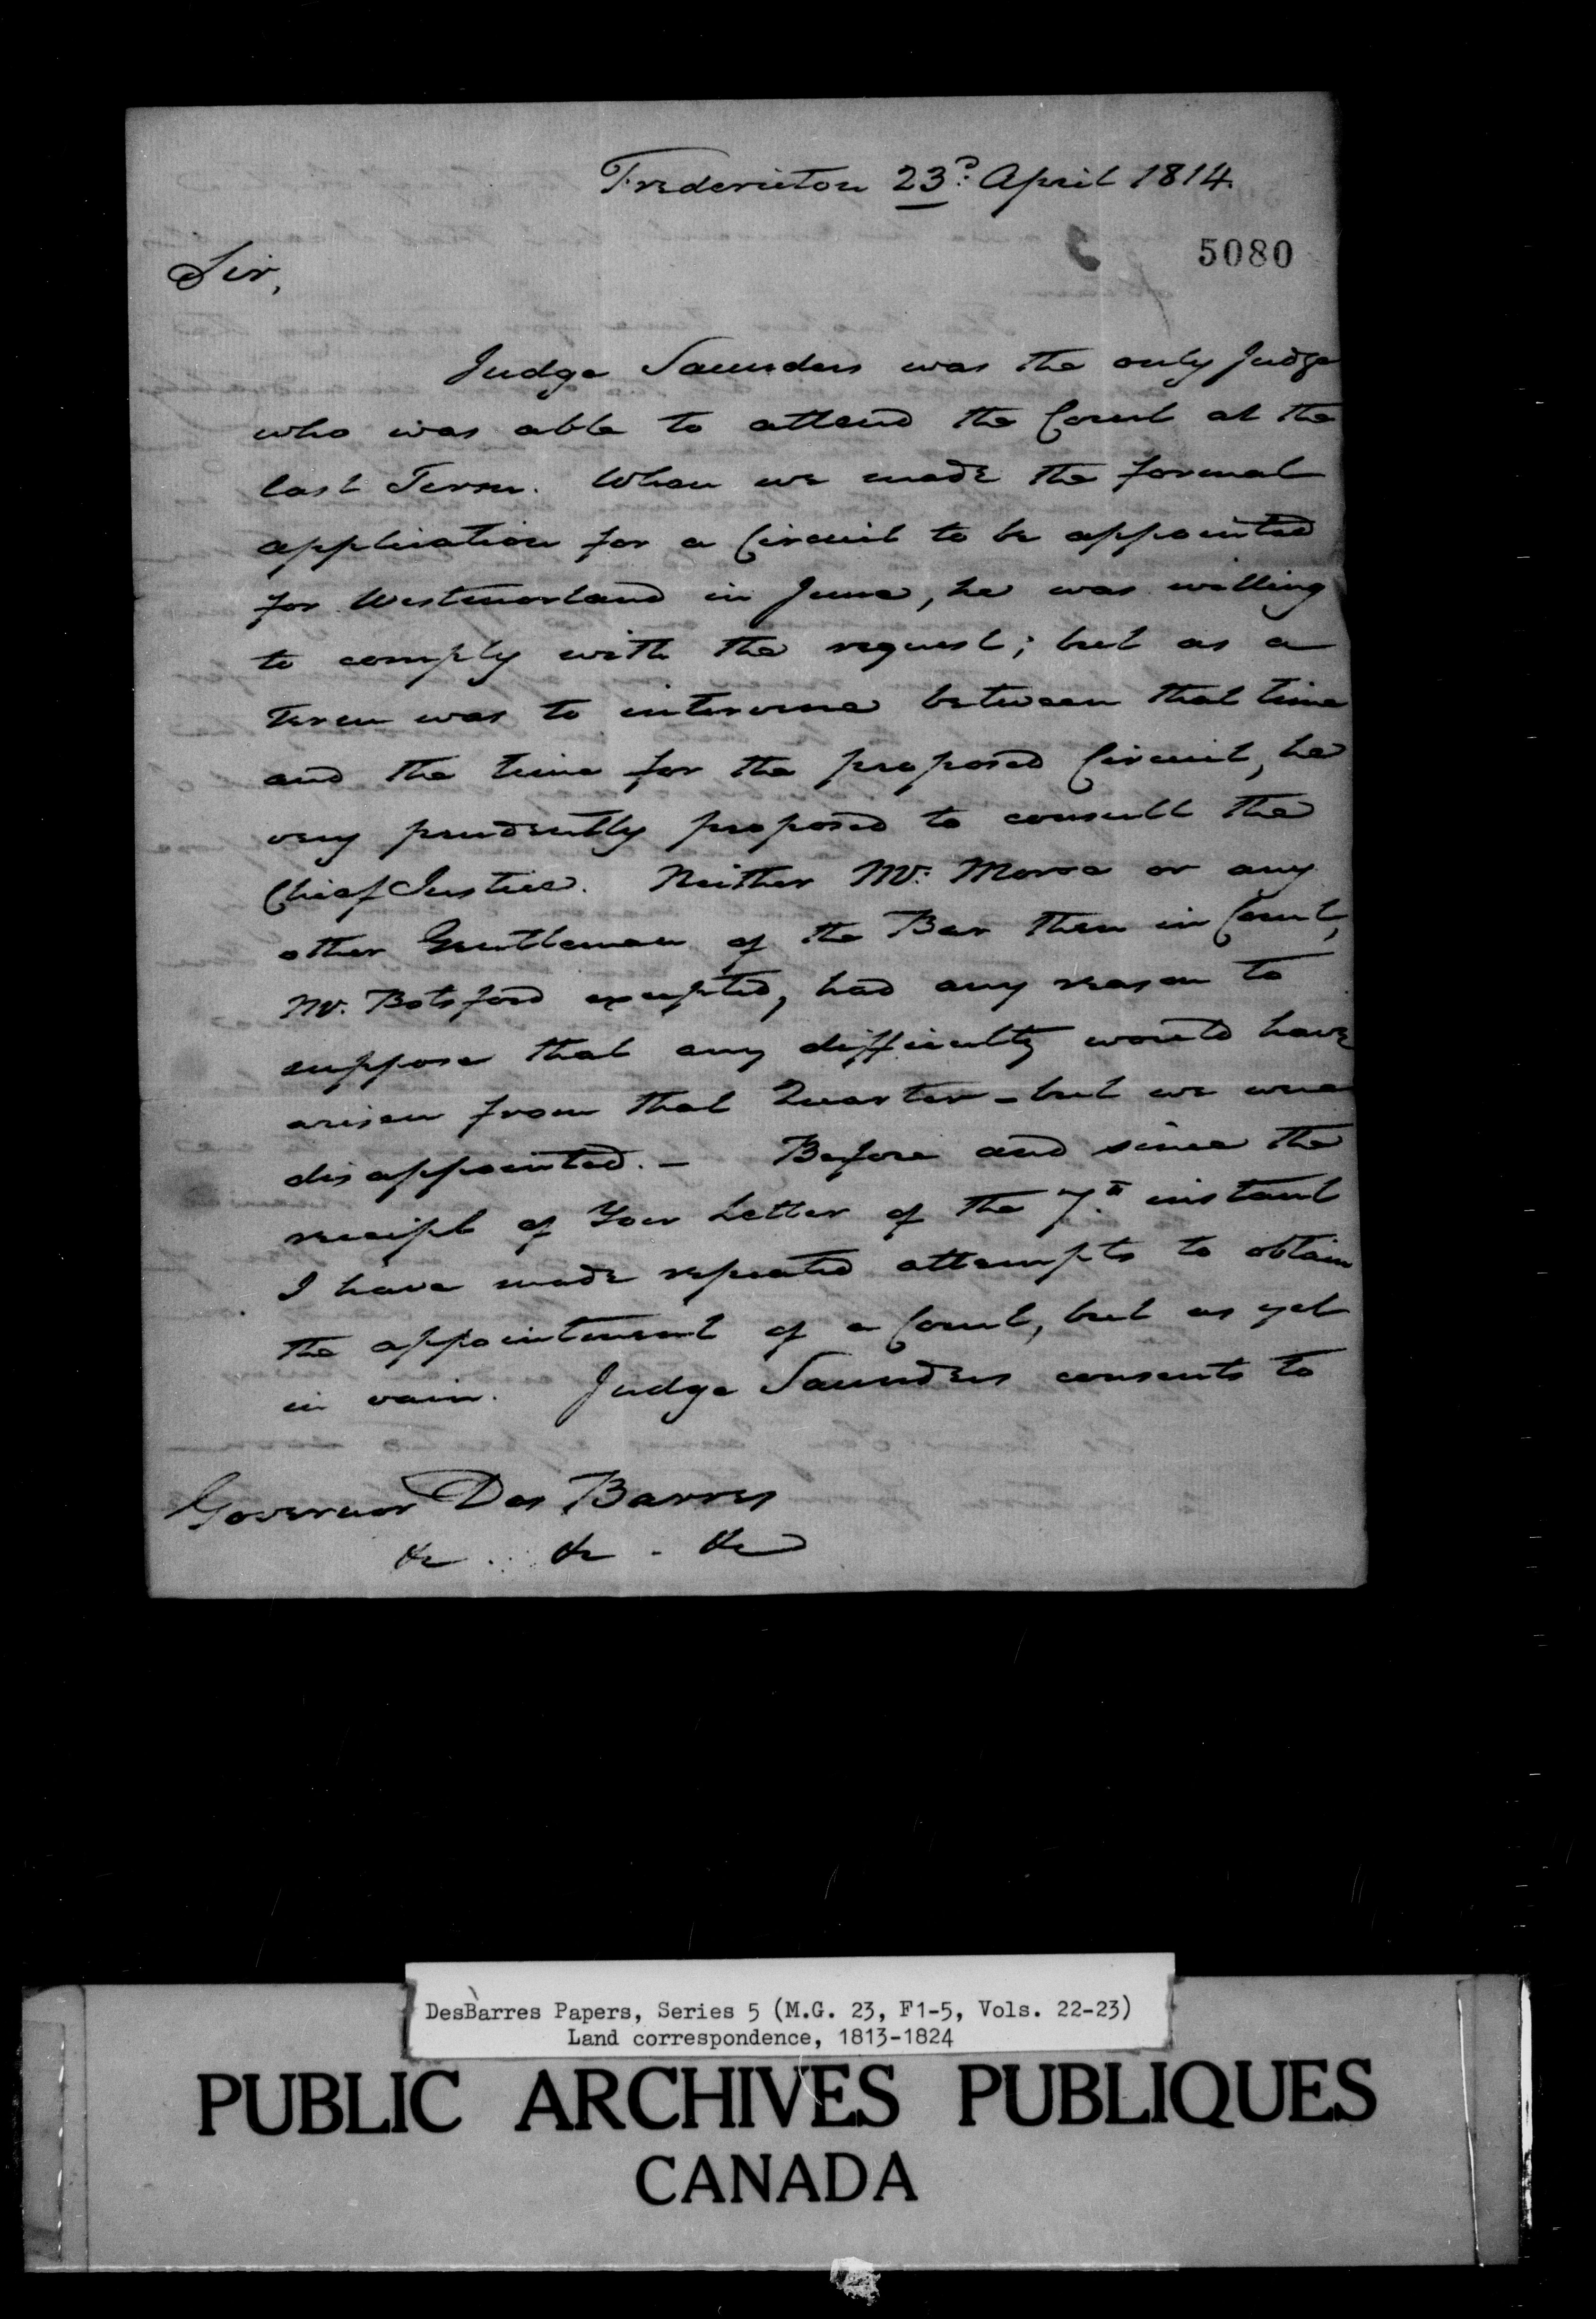 Fredericton 23d. April 1814.
5080
Sir,
Judge Saunders was the only Judge
who was able to attend the Court at the
last Term. When we made the formal
application for a Circuit to be appointed
for Westmorland in June, he was willing
to comply with the request; but as a
Term was to intervene between that time
and the time for the proposed Circuit, he
very prudently proposed to consult the
Chief Justice. Neither Mr. Morse or any
other Gentleman of the Bar then in Court,
Mr. Botsford excepted, had any reason to
suppose that any difficulty would have
arisen from that Quarter - but we were
disappointed. - Before and since the
receipt of Your Letter of the 7th. instant
I have made repeated attempts to obtain
the appointment of a Court, but as yet
in vain. Judge Saunders consents to
Governor Des Barres
&c . &c . &c
DesBarres Papers, Series 5 (M.G. 23, F1-5, Vols. 22-23)
Land correspondence, 1813-1824
PUBLIC ARCHIVES PUBLIQUES
CANADA